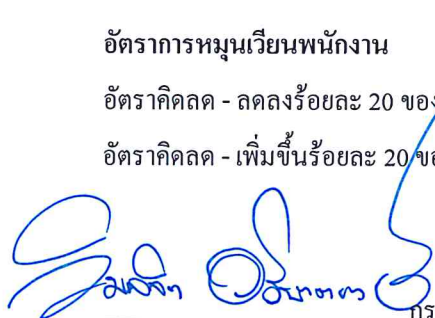 อัตราการหมุนเวียนพนักงาน
อัตราคิดลด - ลดลงร้อยละ 20 ของ
อัตราคิดลด - เพิ่มขึ้นร้อยละ 20 ขอ
กร